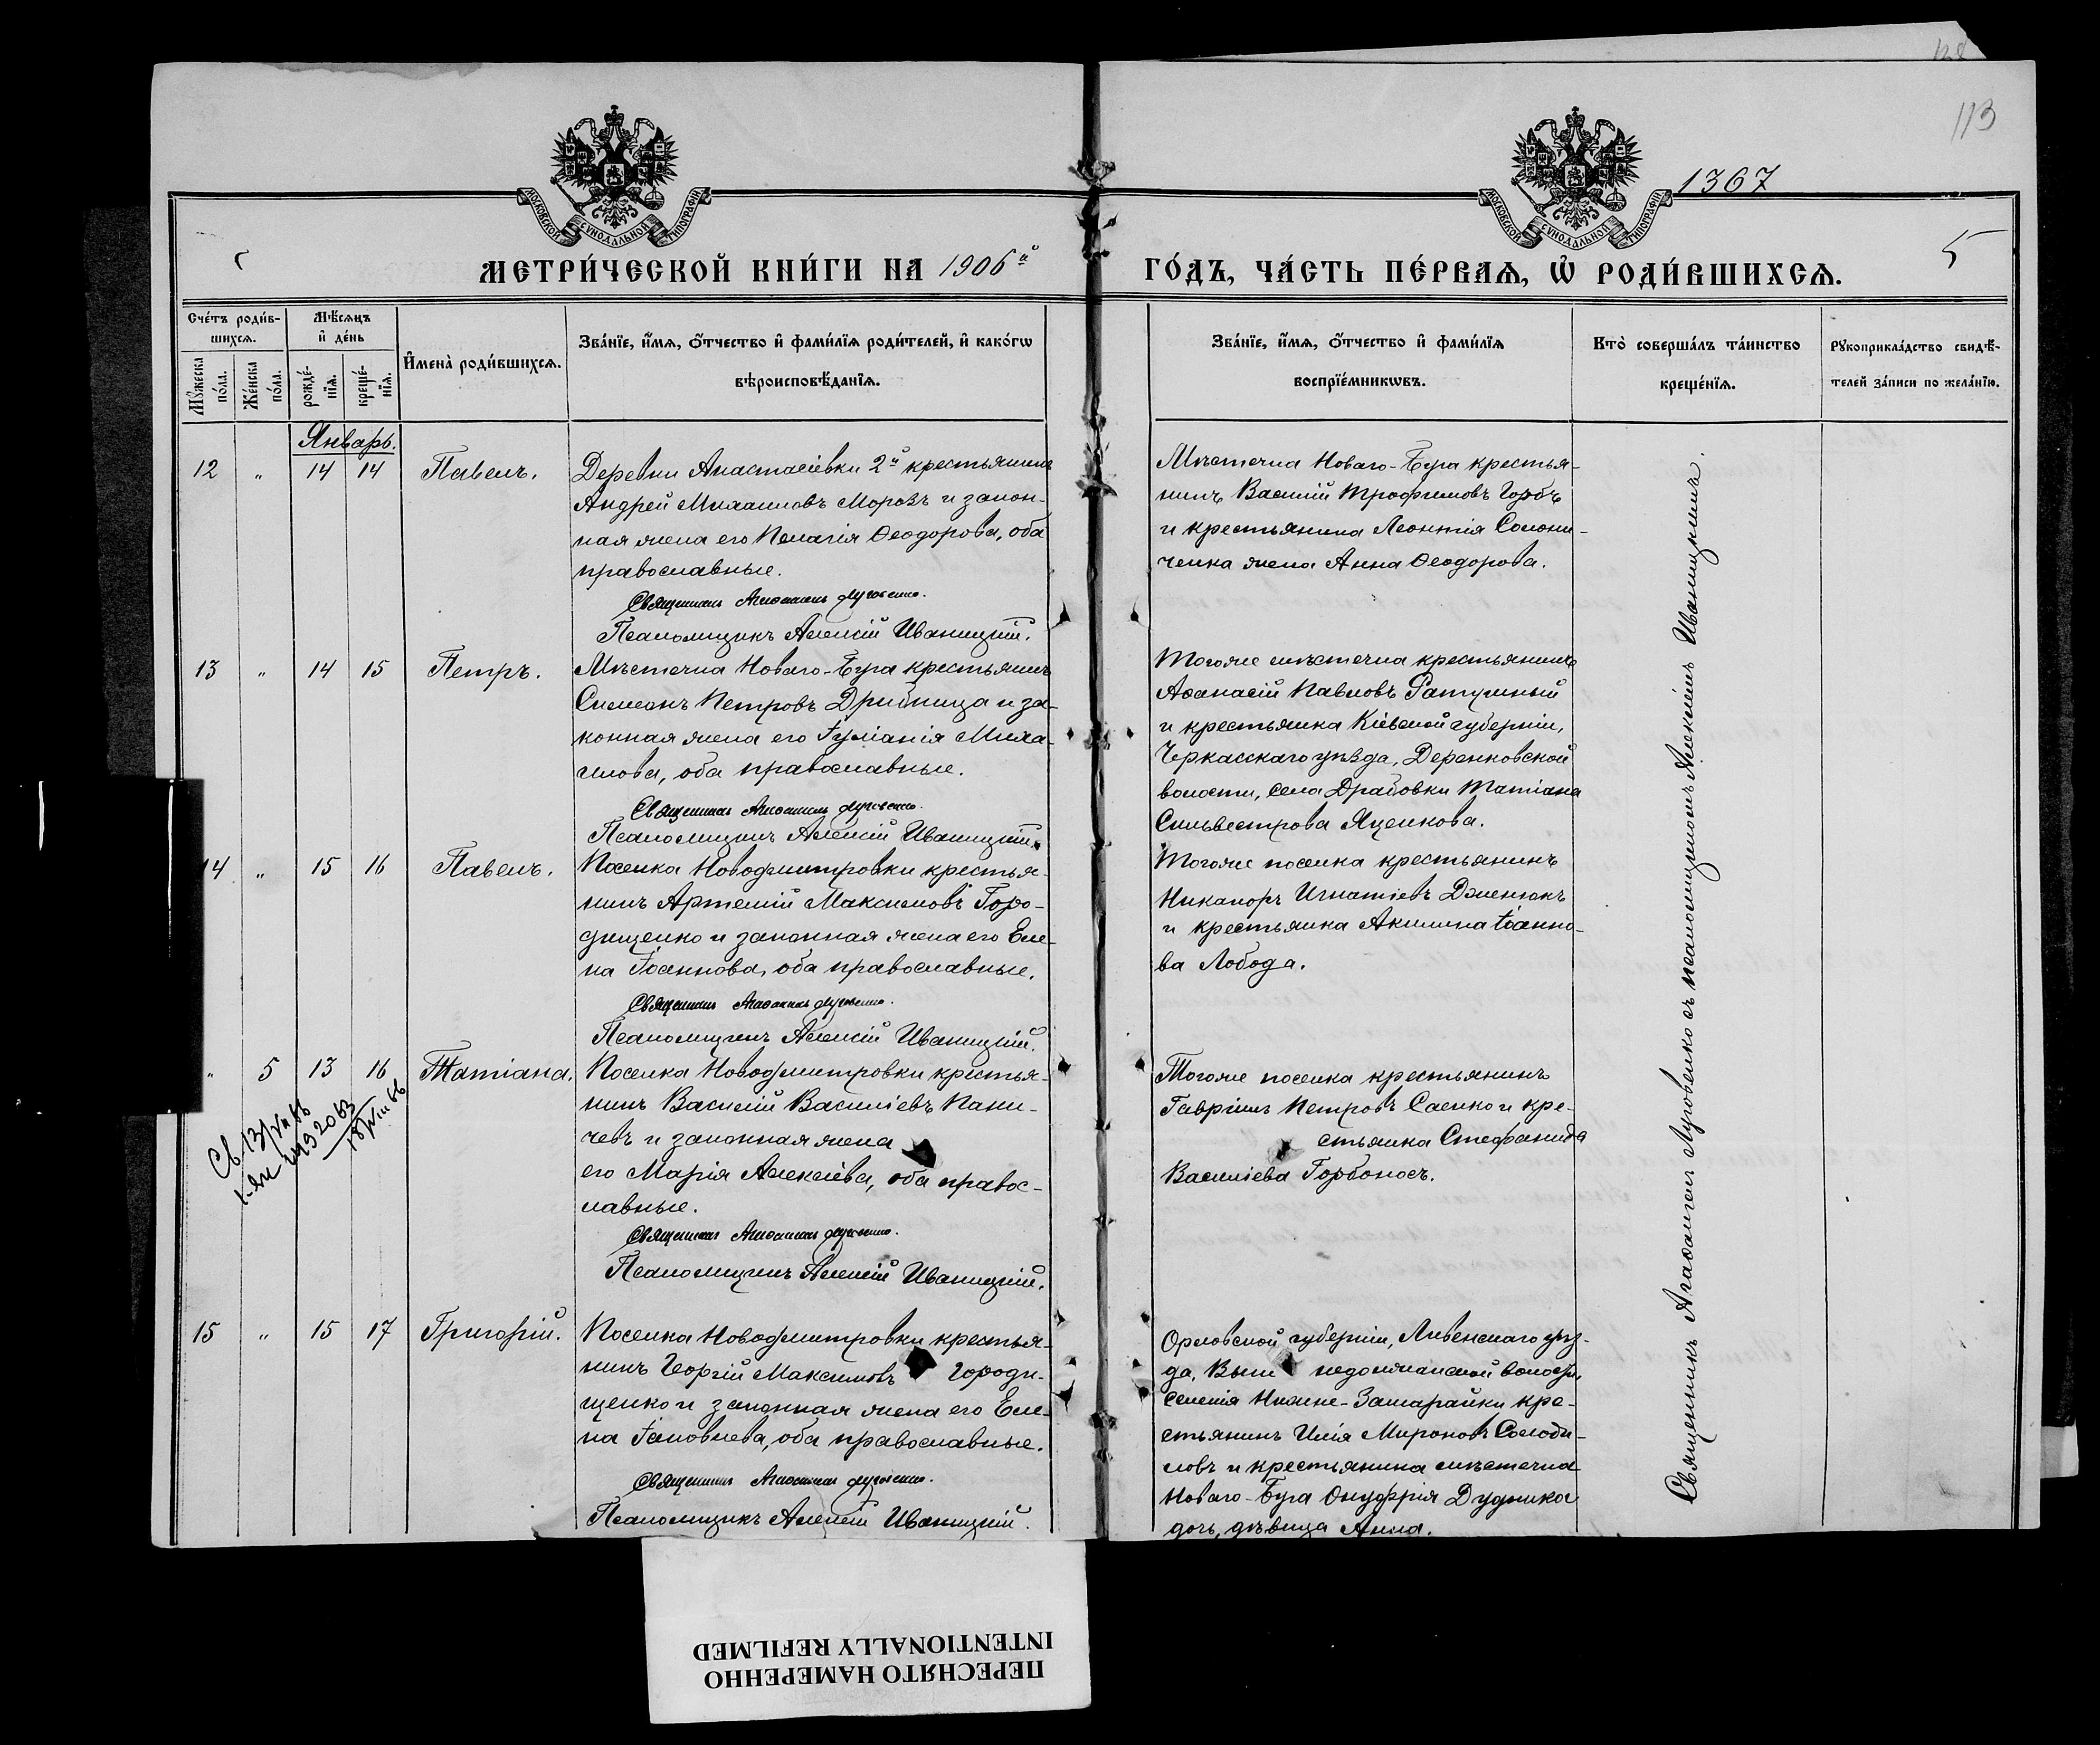 113
1367
5
МОСКОВСКОЙ СУНОДАЛЬНОЙ ТИПОГРАФІИ
МОСКОВСКОЙ СУНОДАЛЬНОЙ ТИПОГРАФІИ
МЕТРИ́ЧЕСКОЙ КНИ́ГИ НА 1906й
ГО́ДЪ, ЧА́СТЬ ПЕ́РВАѦ, Ѡ҆ РОДИ́ВШИХСѦ.
Сче́тъ роди́в-
шихсѧ.
Мꙋ́жеска по́ла.
Же́нска по́ла.
Мѣ́сѧцъ
и҆ де́нь
рожде́-
нїѧ.
креще́-
нїѧ.
И҆мена̀ роди́вшихсѧ.
Зва́нїе, и҆́мѧ, ѻ҆́тчество и҆ фами́лїѧ роди́телей, и҆ како́гѡ
вѣроисповѣ́данїѧ.
Зва́нїе, и҆́мѧ, ѻ҆́тчество и҆ фами́лїѧ
воспрїе́мникѡвъ.
Кто̀ соверша́лъ та́инство
креще́нїѧ.
Рꙋкоприкла́дство свидѣ́-
телей за́писи по жела́нїю.
Январь.
12 " 14 14 Павелъ.
Деревни Анастасіевки 2й крестьянинъ
Андрей Михаиловъ Морозъ и закон-
ная жена его Пелагія Ѳеодорова, оба
православные.
Священникъ Агаѳангелъ Луговенко.
Псаломщикъ Алексій Иваницкій.
Мѣстечка Новаго-Буга крестья-
нинъ Василій Трофимовъ Горбъ
и крестьянина Леонтія Солони-
ченка жена Анна Ѳеодорова.
13 " 14 15 Петръ.
Мѣстечка Новаго-Буга крестьянинъ
Симеонъ Петровъ Дрибница и за-
конная жена его Іуліанія Миха-
илова, оба православные.
Священникъ Агаѳангелъ Луговенко.
Псаломщикъ Алексій Иваницкій.
Тогоже мѣстечка крестьянинъ
Аѳанасій Павловъ Ратушный
и крестьянка Кіевской губерніи,
Черкасскаго уѣзда, Деренковской
волости, села Драбовки Татіана
Сильвестрова Яценкова.
14 " 15 16 Павелъ.
Поселка Новодмитровки крестья-
нинъ Артемій Максимовъ Горо-
дищенко и законная жена его Еле-
на Іоаннова, оба православные.
Священникъ Агаѳангелъ Луговенко.
Псаломщикъ Алексій Иваницкій.
Тогоже поселка крестьянинъ
Никаноръ Игнатіевъ Дженжокъ
и крестьянка Акилина Іоанно-
ва Лобода.
" 5 13 16 Татіана.
Поселка Новодмитровки крестья-
нинъ Василій Василіевъ Пани-
чевъ и законная жена
его Марія Алексіева, оба правос-
лавные.
Священникъ Агаѳангелъ Луговенко.
Псаломщикъ Алексій Иваницкій.
Тогоже поселка крестьянинъ
Гавріилъ Петровъ Саенко и кре-
стьянка Стефанида
Василіева Горбоносъ.
15 " 15 17 Григорій.
Поселка Новодмитровки крестья-
нинъ Георгій Максимовъ Городи-
щенко и законная жена его Еле-
на Іаковлева, оба православные.
Священникъ Агаѳангелъ Луговенко.
Псаломщикъ Алексій Иваницкій.
Орловской губерніи, Ливенскаго уѣз-
да, волости,
селенія Нижне- кре-
стьянинъ Илія Мироновъ Солоди-
ловъ и крестьянина мѣстечка
Новаго-Буга Онуфрія Дудника
дочь, дѣвица Анна.
Священникъ Агаѳангелъ Луговенко съ псаломщикомъ Алексіемъ Иваницкимъ.
ПЕРЕСНЯТО НАМЕРЕННО
INTENTIONALLY REFILMED